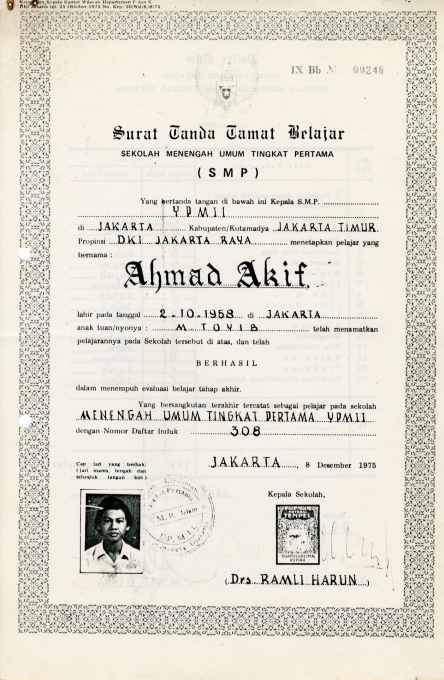 IX Bb № 09248
Surat Tanda Tamat Belajar
SEKOLAH MENENGAH UMUM TINGKAT PERTAMA
( SMP )
Yang bertanda tangan di bawah ini Kepala S.M.P.
YPMII
di JAKARTA Kabupaten/Kotamadya JAKARTA TIMUR
Propinsi DKI JAKARTA RAYA menetapkan pelajar yang
bernama :
Ahmad Akif.
lahir pada tanggal 2-10-1958 di JAKARTA
anak tuan/nyonya : M. TOYIB telah menamatkan
pelajarannya pada Sekolah tersebut di atas, dan telah
BERHASIL
dalam menempuh evaluasi belajar tahap akhir.
Yang bersangkutan terakhir tercatat sebagai pelajar pada sekolah
MENENGAH UMUM TINGKAT PERTAMA YPMII
dengan Nomor Daftar Induk 308
JAKARTA, 8 Desember 1975
Cap jari yang berhak.
(jari manis, tengah dan
telunjuk tangan kiri)
Kepala Sekolah,
M.P. Islam
TEMPEL
(Drs. RAMLI HARUN)